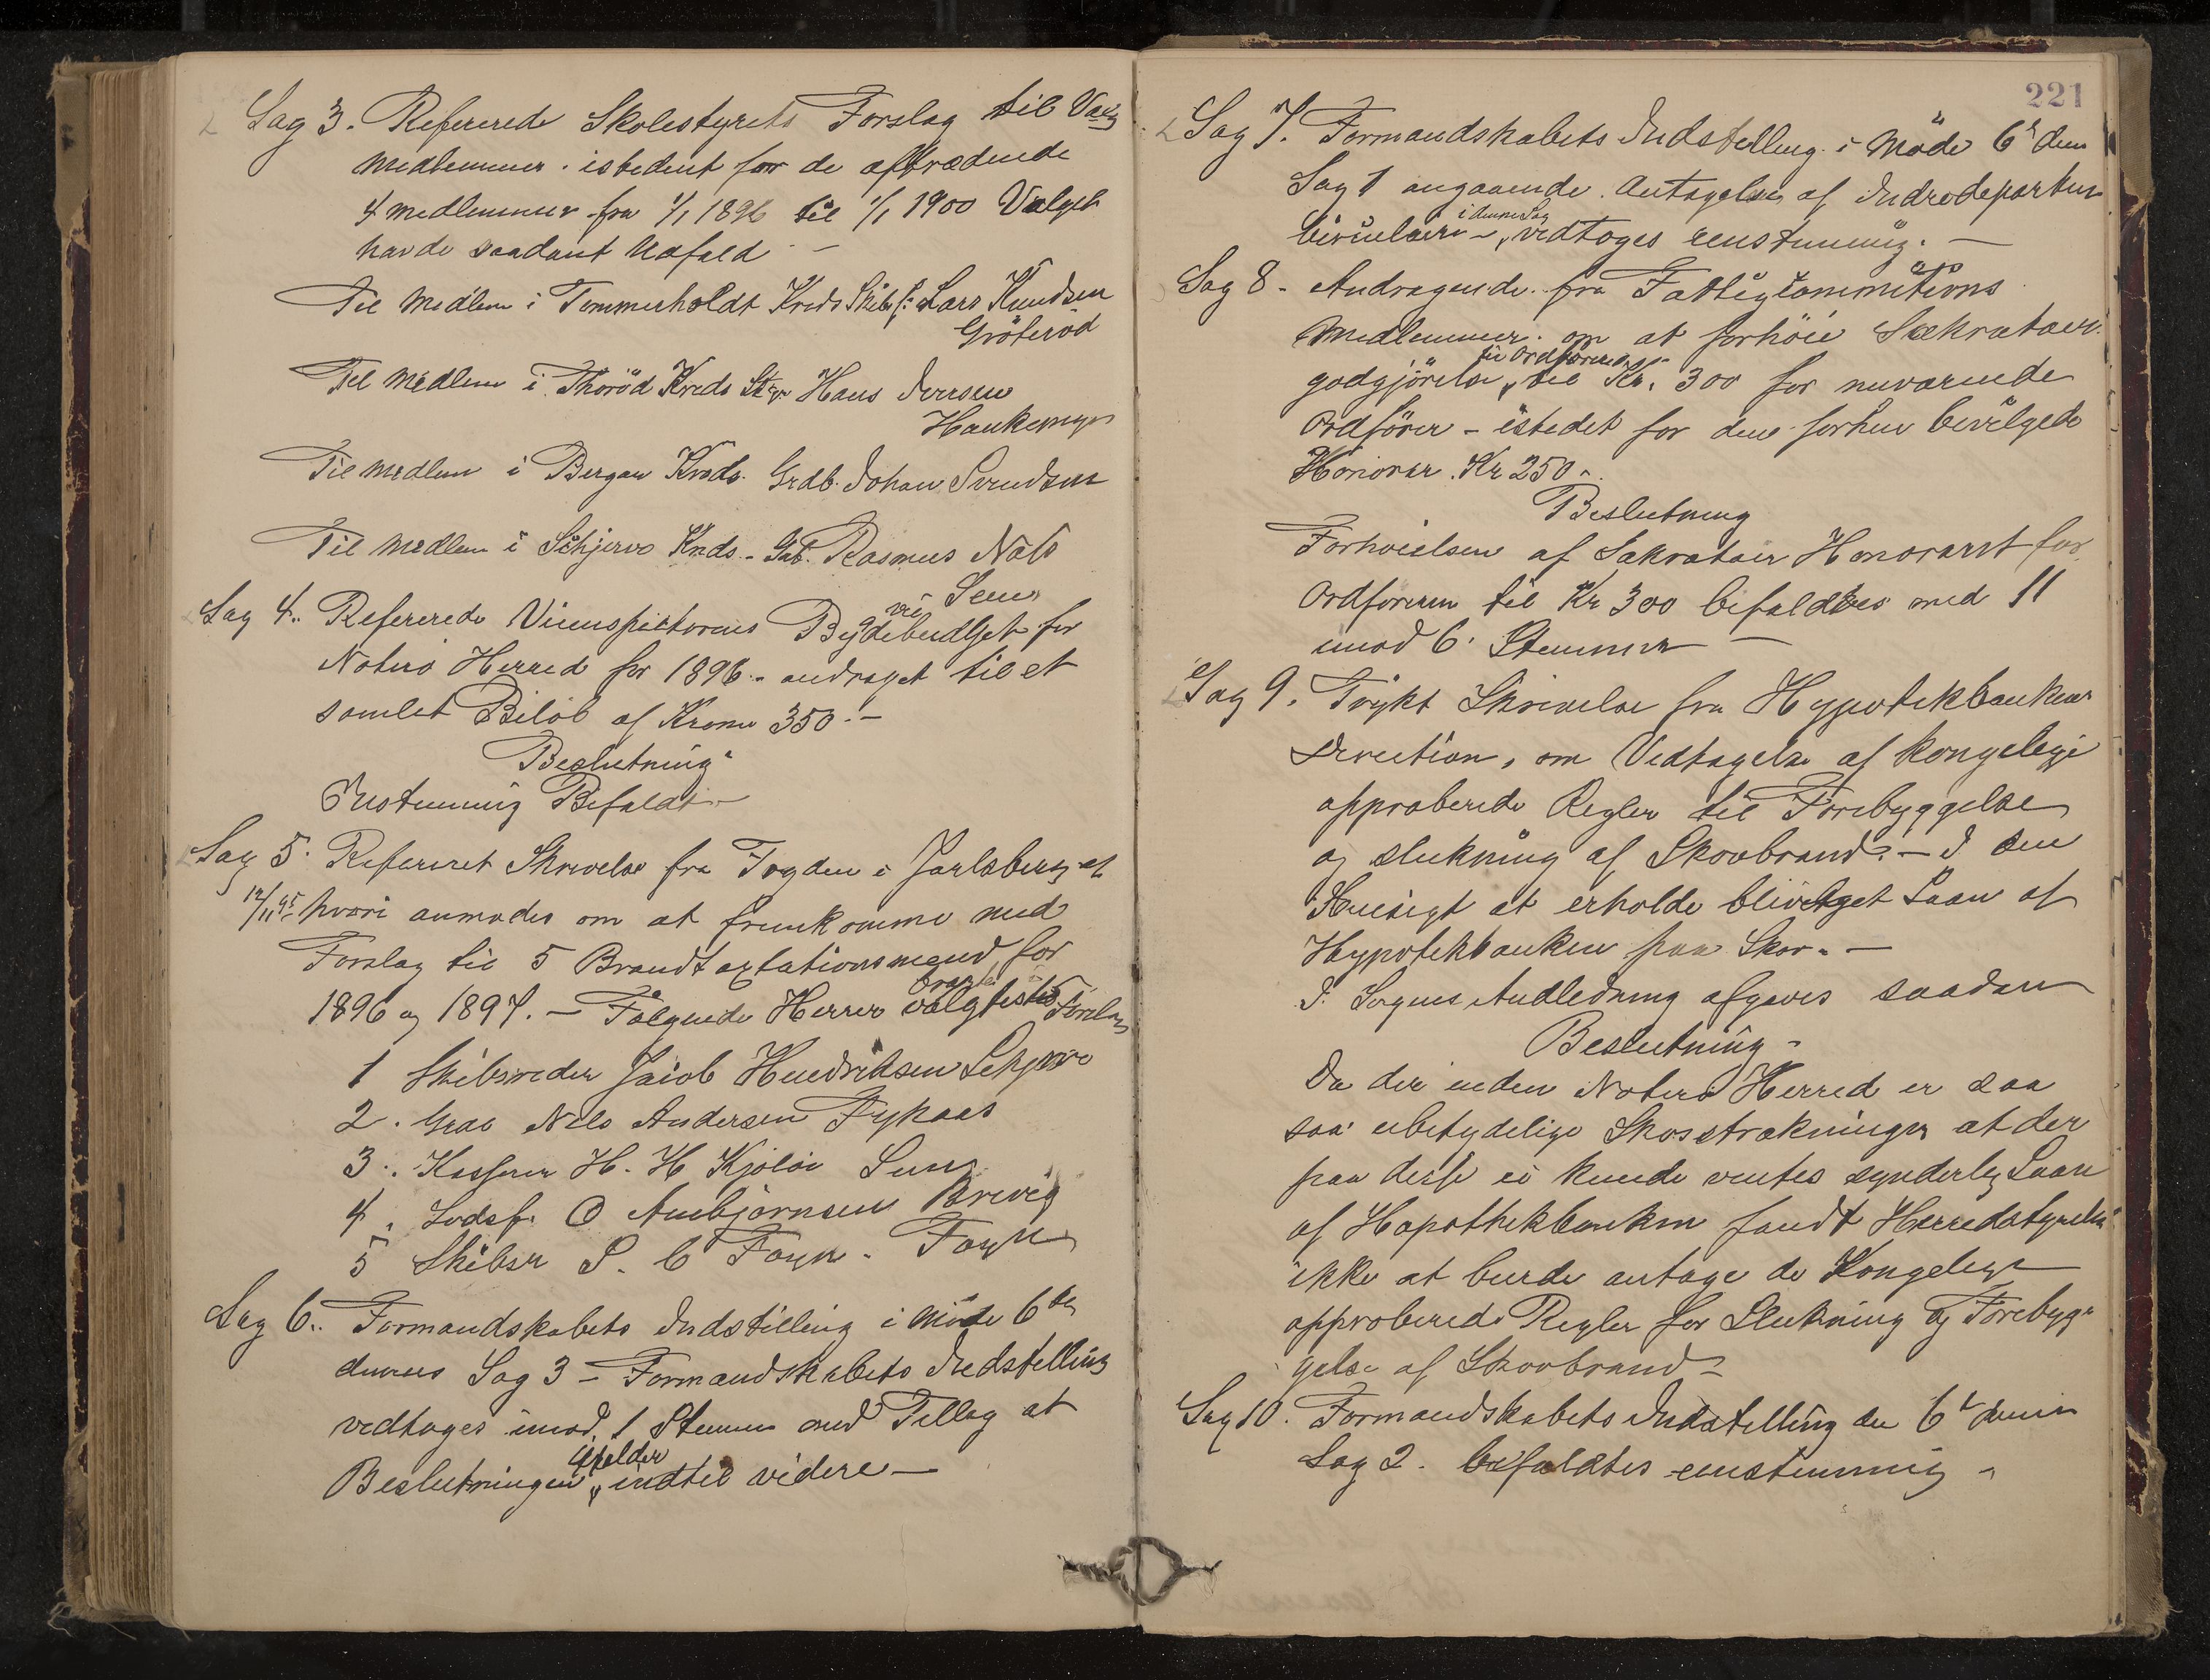 Sag 3. Refererede Skolestyrets Forslag til Valg
Medlemmer istedent for de aftrædende
4 medlemmer fra 1/1 1896 til 1/1 1900 Valget
havde saadant Udfald –
Til Medlem i Tømmerholdt Kreds Skibsf: Lars Knudsen
Gröteröd
Til Medlem i Thoröd Kreds Hans Iversen
Haukemyr
Til Medlem i Bergan Kreds. Grdb. Johan Svendsen
Til Medlem i Schjervo Kreds. Gdb. Rasmus Näts
Sem
Sag 4. Refererede Vieinspectorens Bygdebudget for
vei
Nøterö Herred for 1896 – andraget til et
samlet Bilöb af Kroner 350. –
Beslutning
Enstemmig Bifaldt –
Sag 5. Refereret Skrivelse fra Fogden i Jarlsberg af
12/11 95 hvori anmodes om at fremkomme med
Forslag til 5 Brandtaxtationsmænd for
1896 og 1897. – Følgende Herrer valgtes til Foreslag
1 Skibsreder Jacob Hendriksen Schjervo
2. Grdb Nils Andersen Fykaas
3. Kasserer H. H Kjölöi Sem
4. Lodsf. O Anebjørnsen Brevig
5 Skibsr S. C Foyn. Foyn
Sag 6. Formandskabets Indstilling i Möde 6te
dennes Sag 3 – Formandskabets Indstilling
vedtages imod 1 Stemme med Tillæg at
Beslutningen gjelder indtil videre –
221
Sag 7. Formandskabets Indstelling i Möde 6te den
Sag 1 angaaende Antagelse af Indredepartem
Circulære – i denne Sag vedtoges eenstemmig. –
Sag 8 – Andragende fra Fattigcommitions
Medlemmer om at forhöie Sækretær
godgjörelse til Ordføreren til Kr. 300 for nuværende
Ordförer – istedet for den forhen bevilgede
Honorar Kr 250 –
Beslutning
Forhøielsen af Sækretær Honoraret for
Ordføreren til Kr 300 bifaldtes med 11
imod 6 Stemmer –
Sag 9. Trykt Skrivelse fra Hypotekbanken
Direction, om Vedtagelse af kongelige
approberede Regler til Forebyggelse
og slukning af Skovbrand – I den
Hensigt at erholde bevilget Laan af
Hypotekbanken paa Skov. –
I Sagens Andledning afgaves saadan
Beslutning –
Da der inden Nøterö Herred er saa
saa ubetydelige Skovstrækninger at der
paa disse ei kunde ventes synderlig Laan
af Hapothekbanken fandt Herredstyrelse
ikke at burde antage de Kongelige
approberede Regler for Slukning og Forebyg-
gelse af Skovbrand –
Sag 10. Formandskabets Indstilling den 6te dennes
Sag 2. bifaldtes eenstemmig –